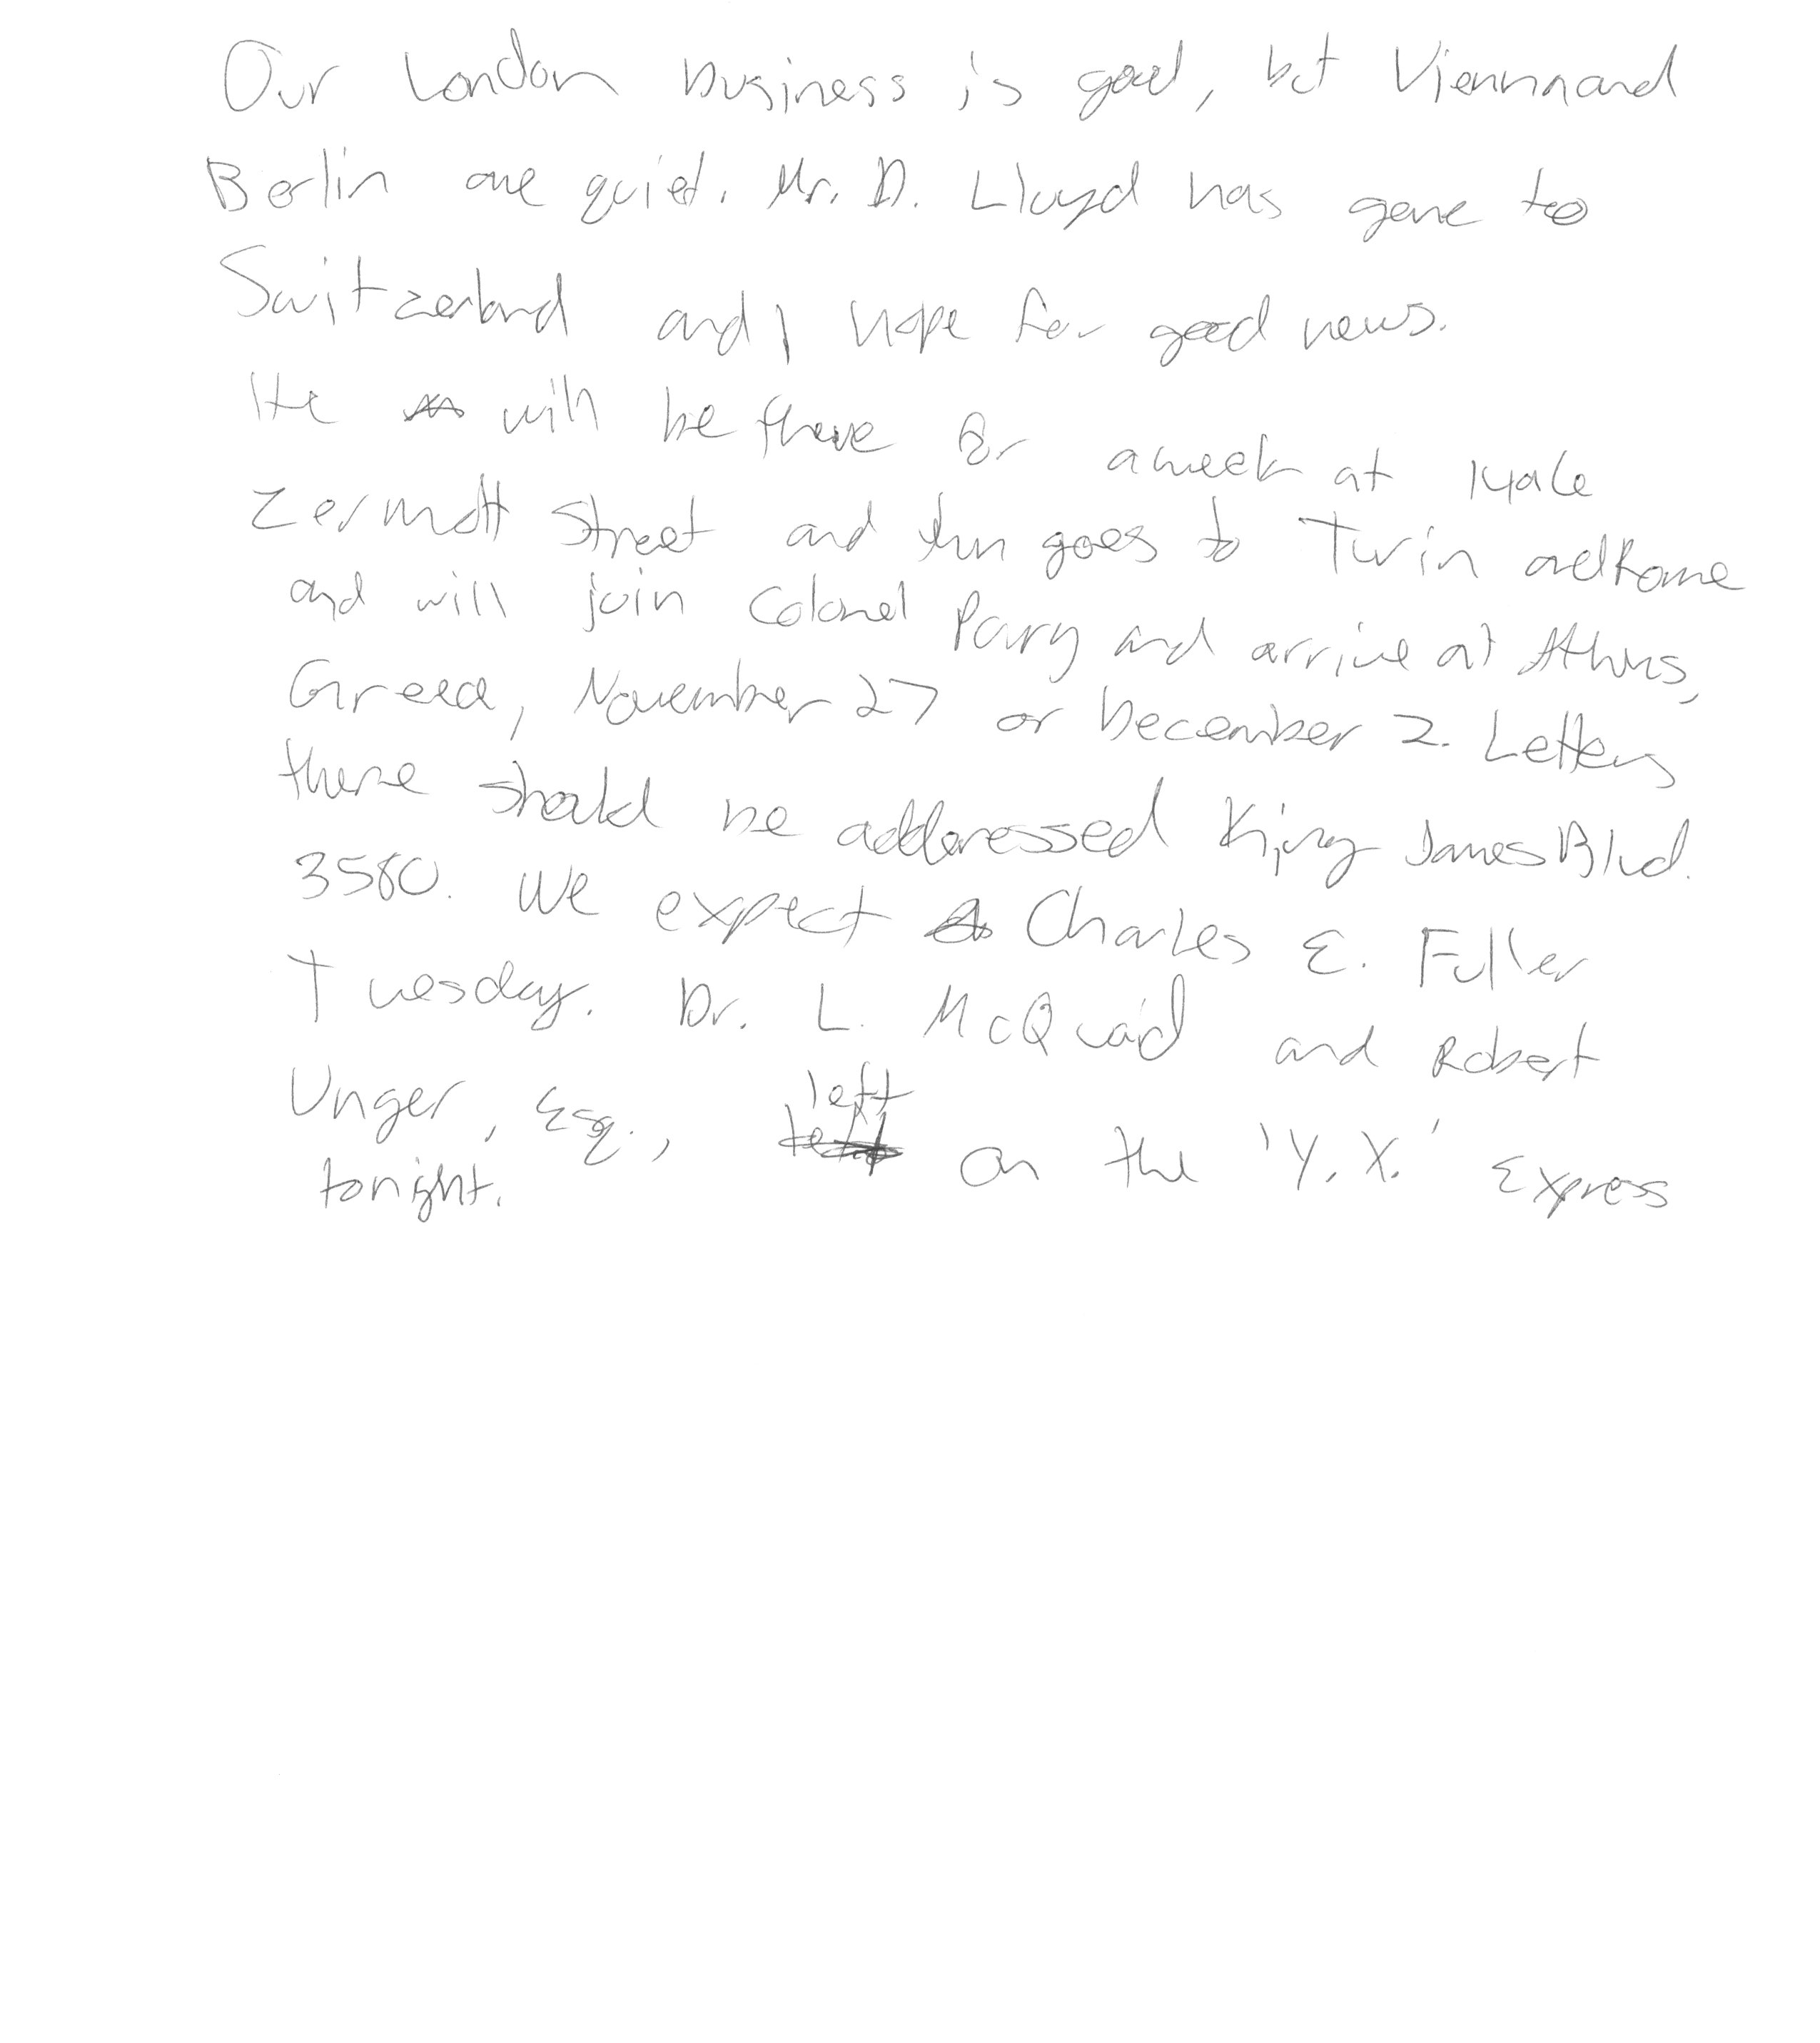 Our London business is good, but Vienna and
Berlin are quiet. Mr. D. Lloyd has gone to
Switzerland and I hope for good news.
He will be there for a week at 1496
Zermott Street and then goes to Turin and Rome
and will join Colonel Parry and arrive at Athens,
Greece, November 27 or December 2. Letters
there should be addressed King James Blvd.
3580. We expect Charles E. Fuller
Tuesday. Dr. L. McQuaid and Robert
Unger, Esq., left on the 'Y. X.' Express
tonight.